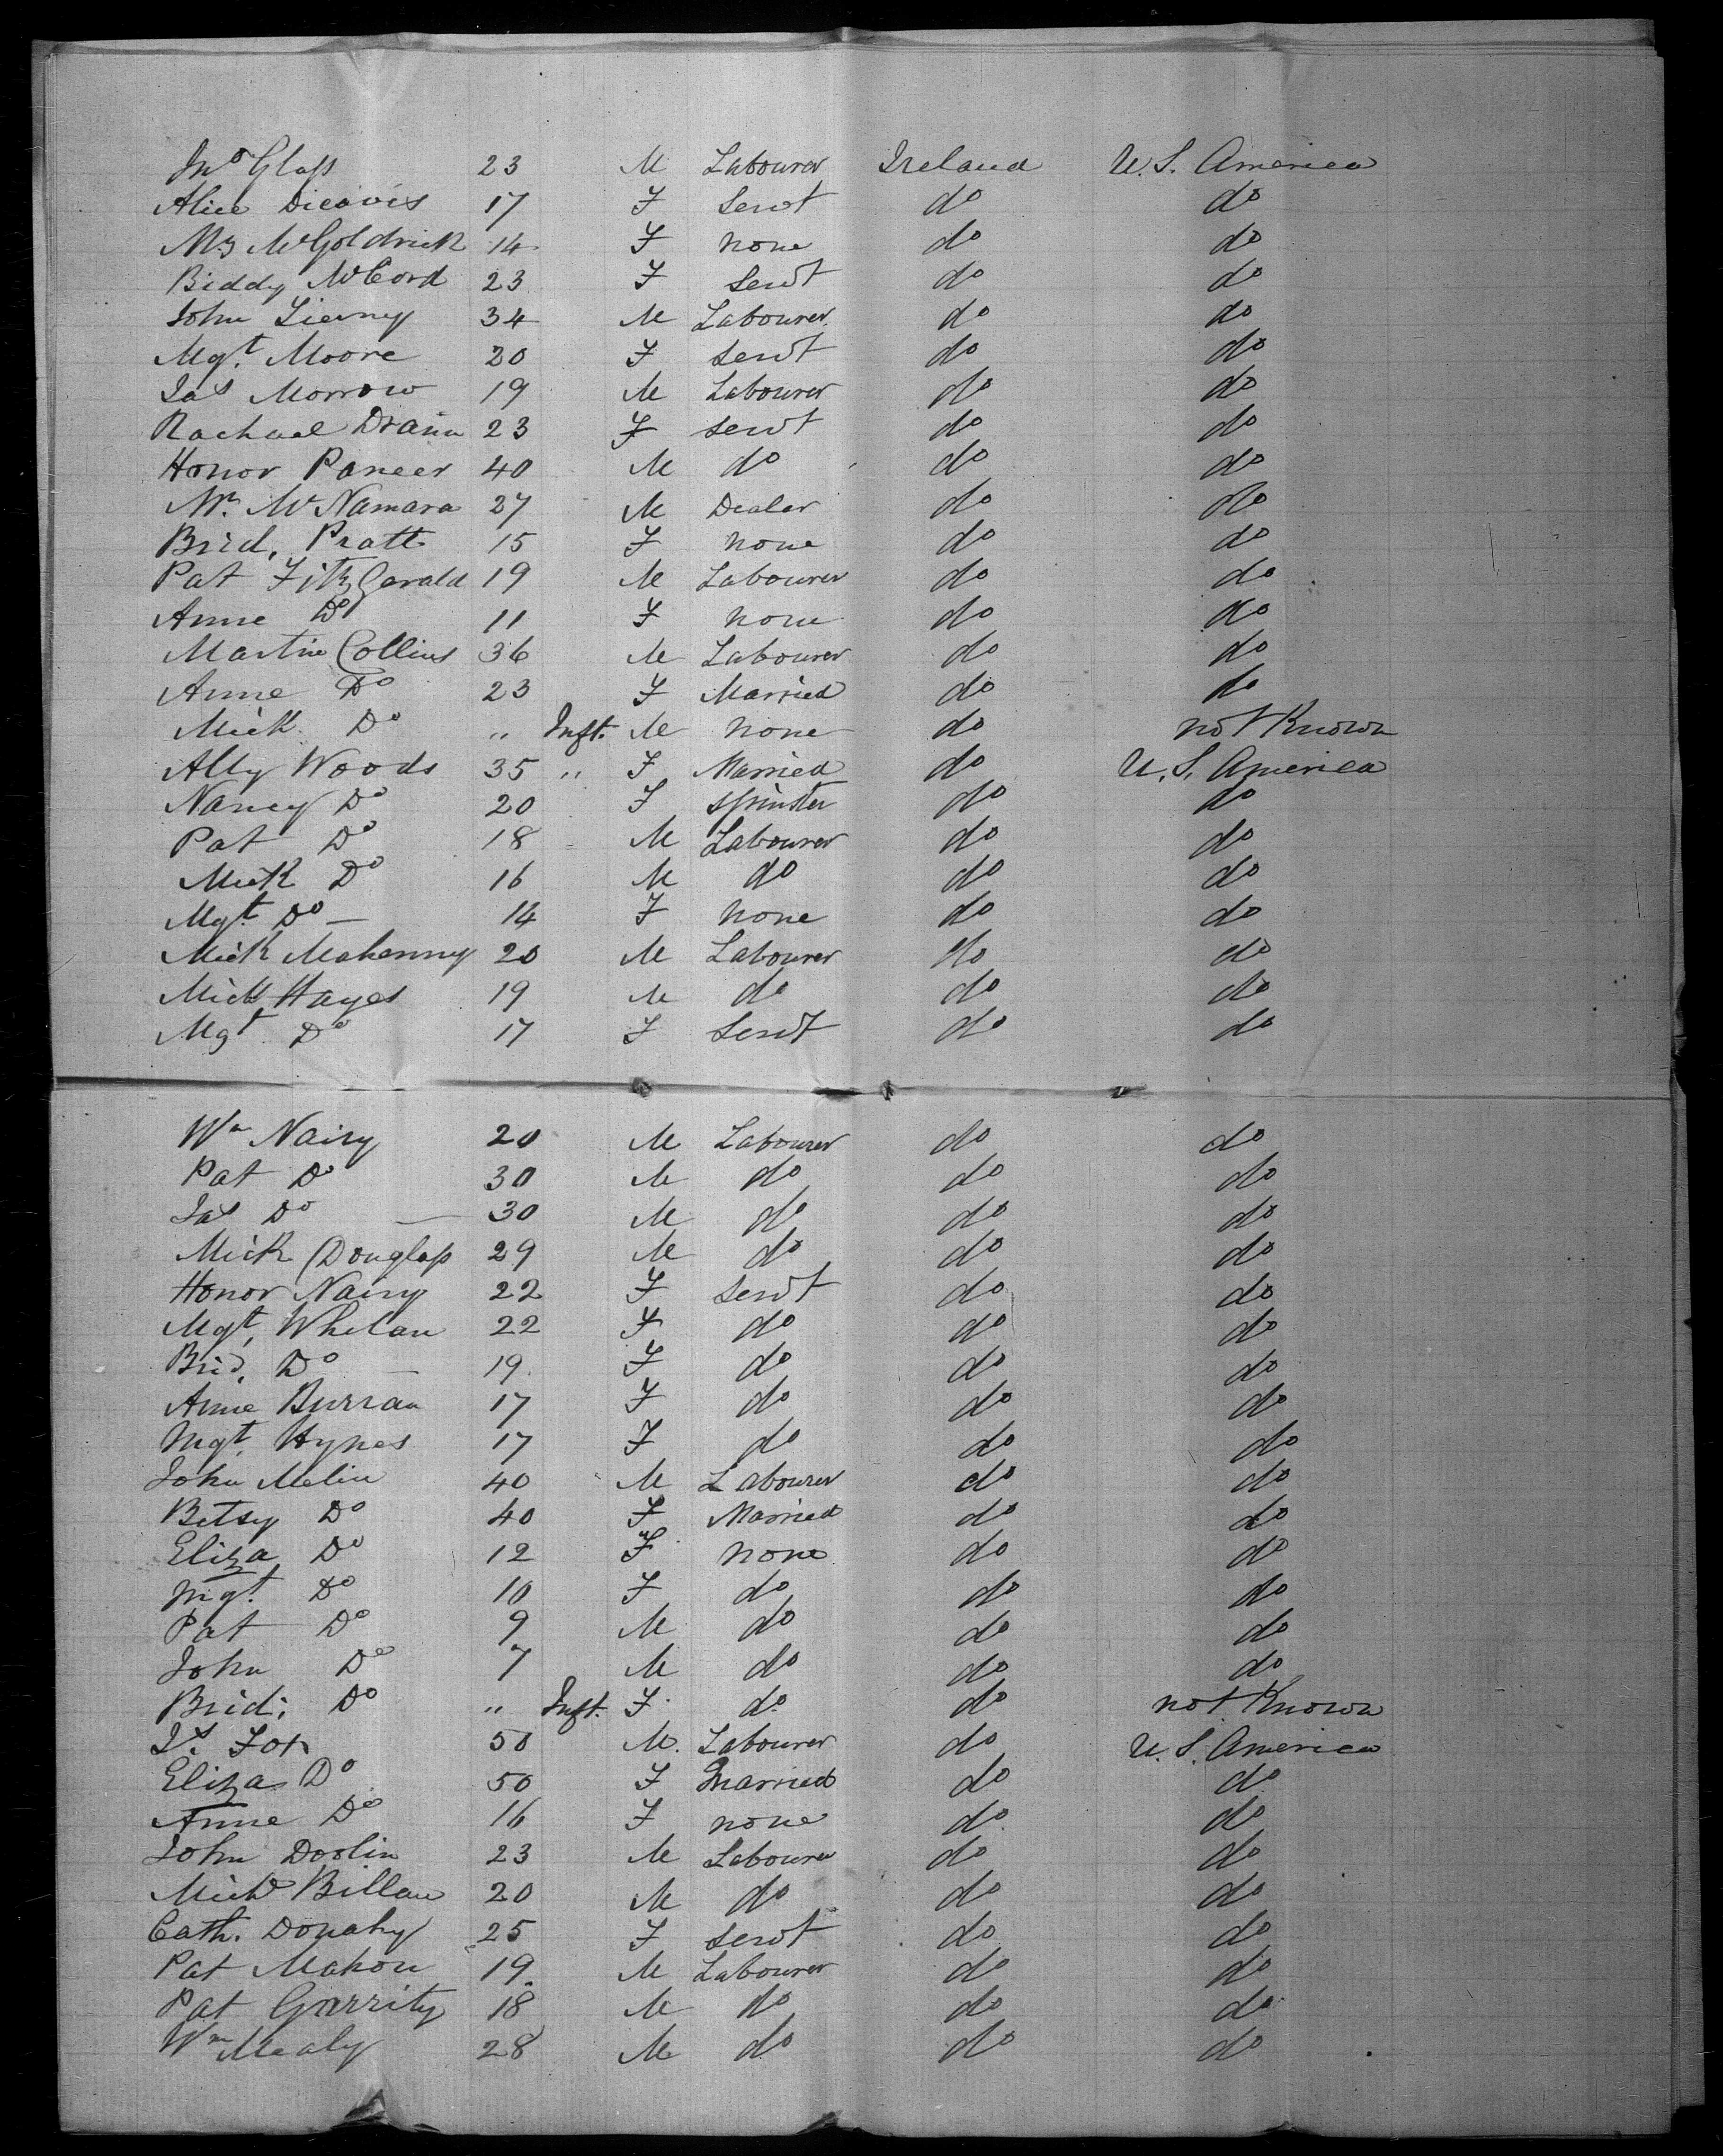 Jno Glass 23 M Labourer Ireland U.S. America
Alice 17 F Servt do do
McGoldrick 14 F none do do
Biddy McCord 23 F Servt do do
John 34 M Labourer do do
Mgt. Moore 20 F Servt do do
Jas Morrow 19 M Labourer do do
Rachael 23 F Servt do do
Honor 40 M do do do
McNamara 27 M Dealer do do
Brid. Pratt 15 F none do do
Pat FitzGerald 19 M Labourer do do
Anne Do 11 F none do do
Martin Collins 36 M Labourer do do
Anne Do 23 F Married do do
Mick Do " Inft. M none do not Known
Ally Woods 35 " F Married do U.S. America
Nancy Do 20 F Spinster do do
Pat Do 18 M Labourer do do
Mick Do 16 M do do do
Mgt. Do — 14 F none do do
Mick Mahenny 20 M Labourer do do
Mick Hayes 19 M do do do
Mgt Do 17 F Servt do do
Wm Nairy 20 M Labourer do do
Pat Do 30 M do do do
Jas Do — 30 M do do do
Mick Douglass 29 M do do do
Honor Nairy 22 F Servt do do
Mgt. Whelan 22 F do do do
Brid. Do — 19 F do do do
Anne Burran 17 F do do do
Mgt. Hynes 17 F do do do
John Melin 40 M Labourer do do
Betsy Do 40 F Married do do
Eliza Do 12 F none do do
Mgt. Do 10 F do do do
Pat Do 9 M do do do
John Do 7 M do do do
Brid: Do " Inft. F do do not Known
Fox 50 M. Labourer do U.S. America
Eliza Do 50 F Married do do
Anne Do 16 F none do do
John Doolin 23 M Labourer do do
Mick Billan 20 M do do do
Cath. Donahy 25 F Servt do do
Pat Mahon 19 M Labourer do do
Pat Garrity 18 M do do do
Wm Mealy 28 M do do do